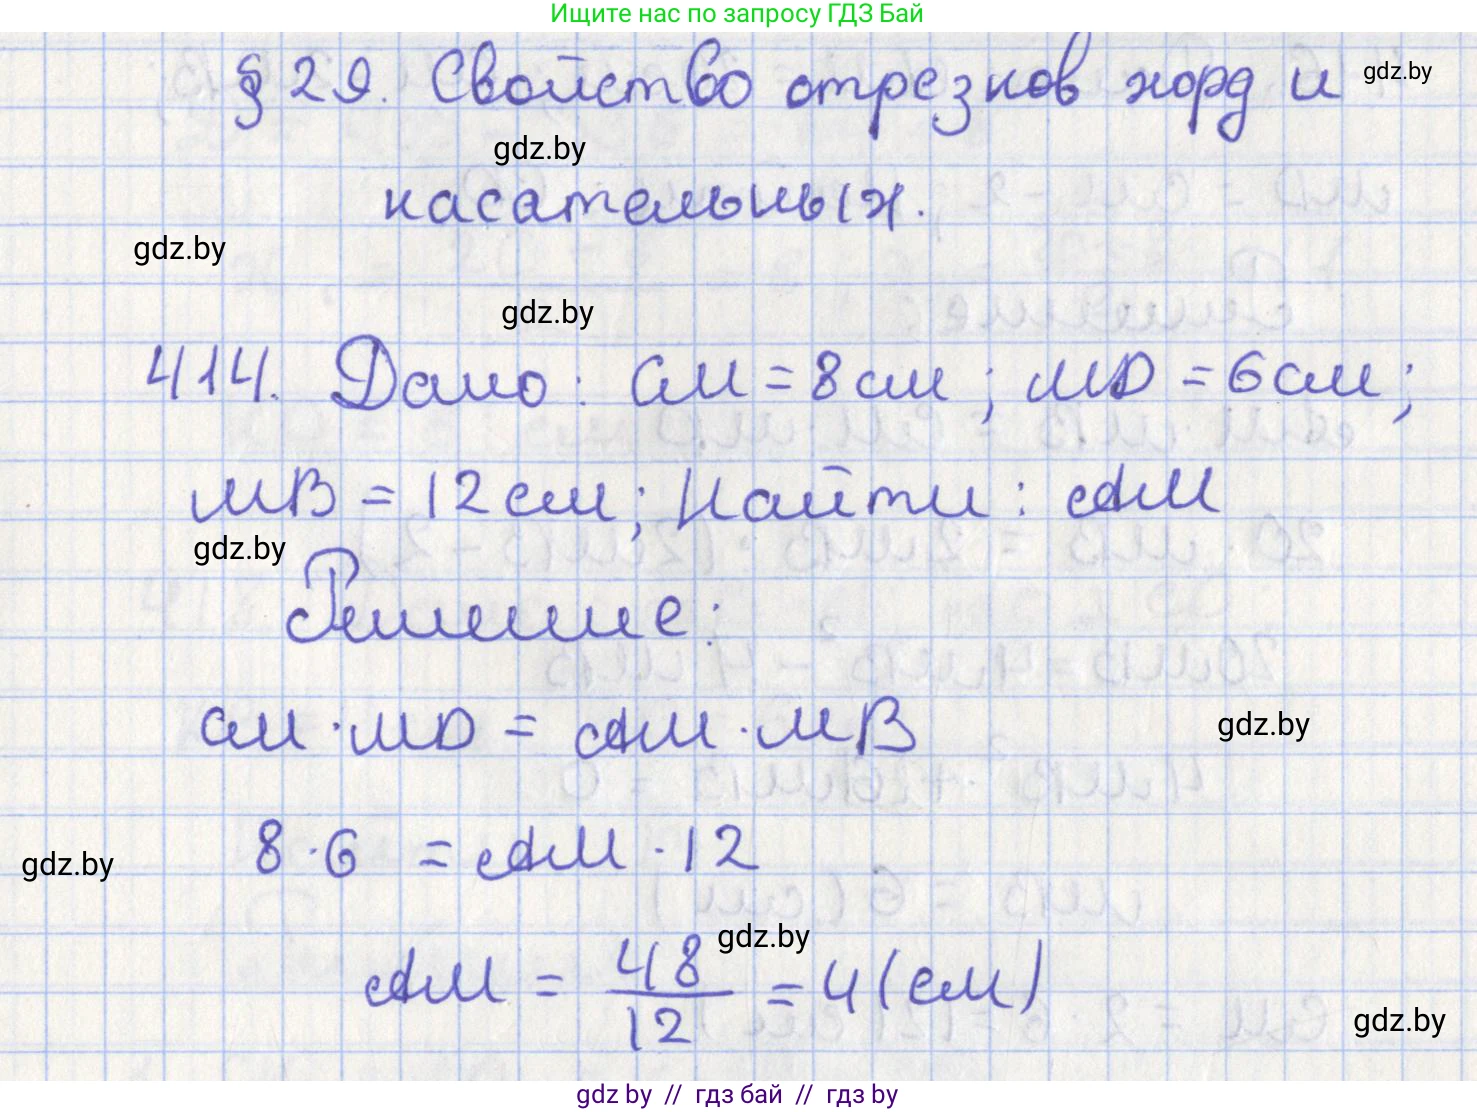 Ищите нас по запросу ГДЗ Бай
§ 29. Свойство отрезков хорд и
gdz.by
gdz.by
касательных.
gdz.by
gdz.by
414. Дано: CM = 8 см; MD = 6 см;
MB = 12 см; Найти: AM
gdz.by
Решение:
CM · MD = AM · MB
gdz.by
8 · 6 = AM · 12
gdz.by
gdz.by
AM = 48/12 = 4 (см)
gdz.by
gdz by // гдз бай // гдз by